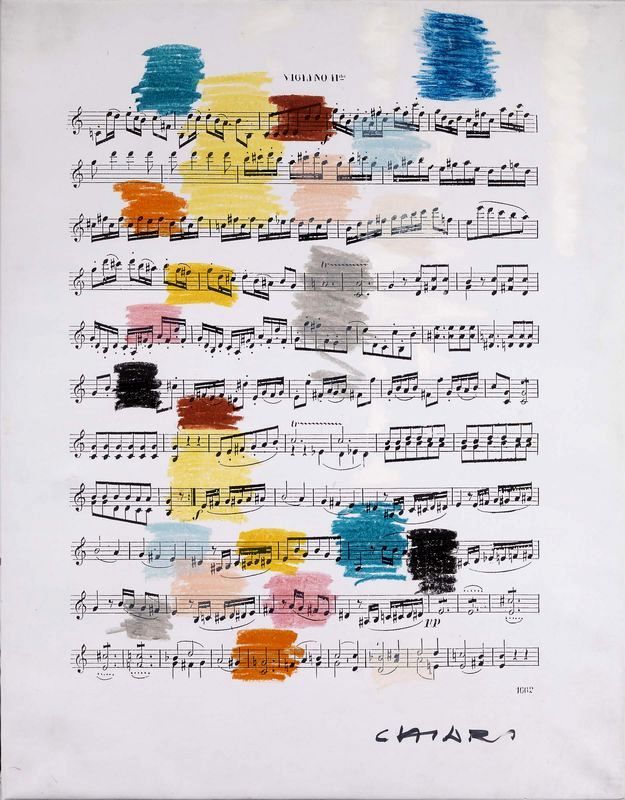 VIOLINO IIº
pp
1662
CHIARI